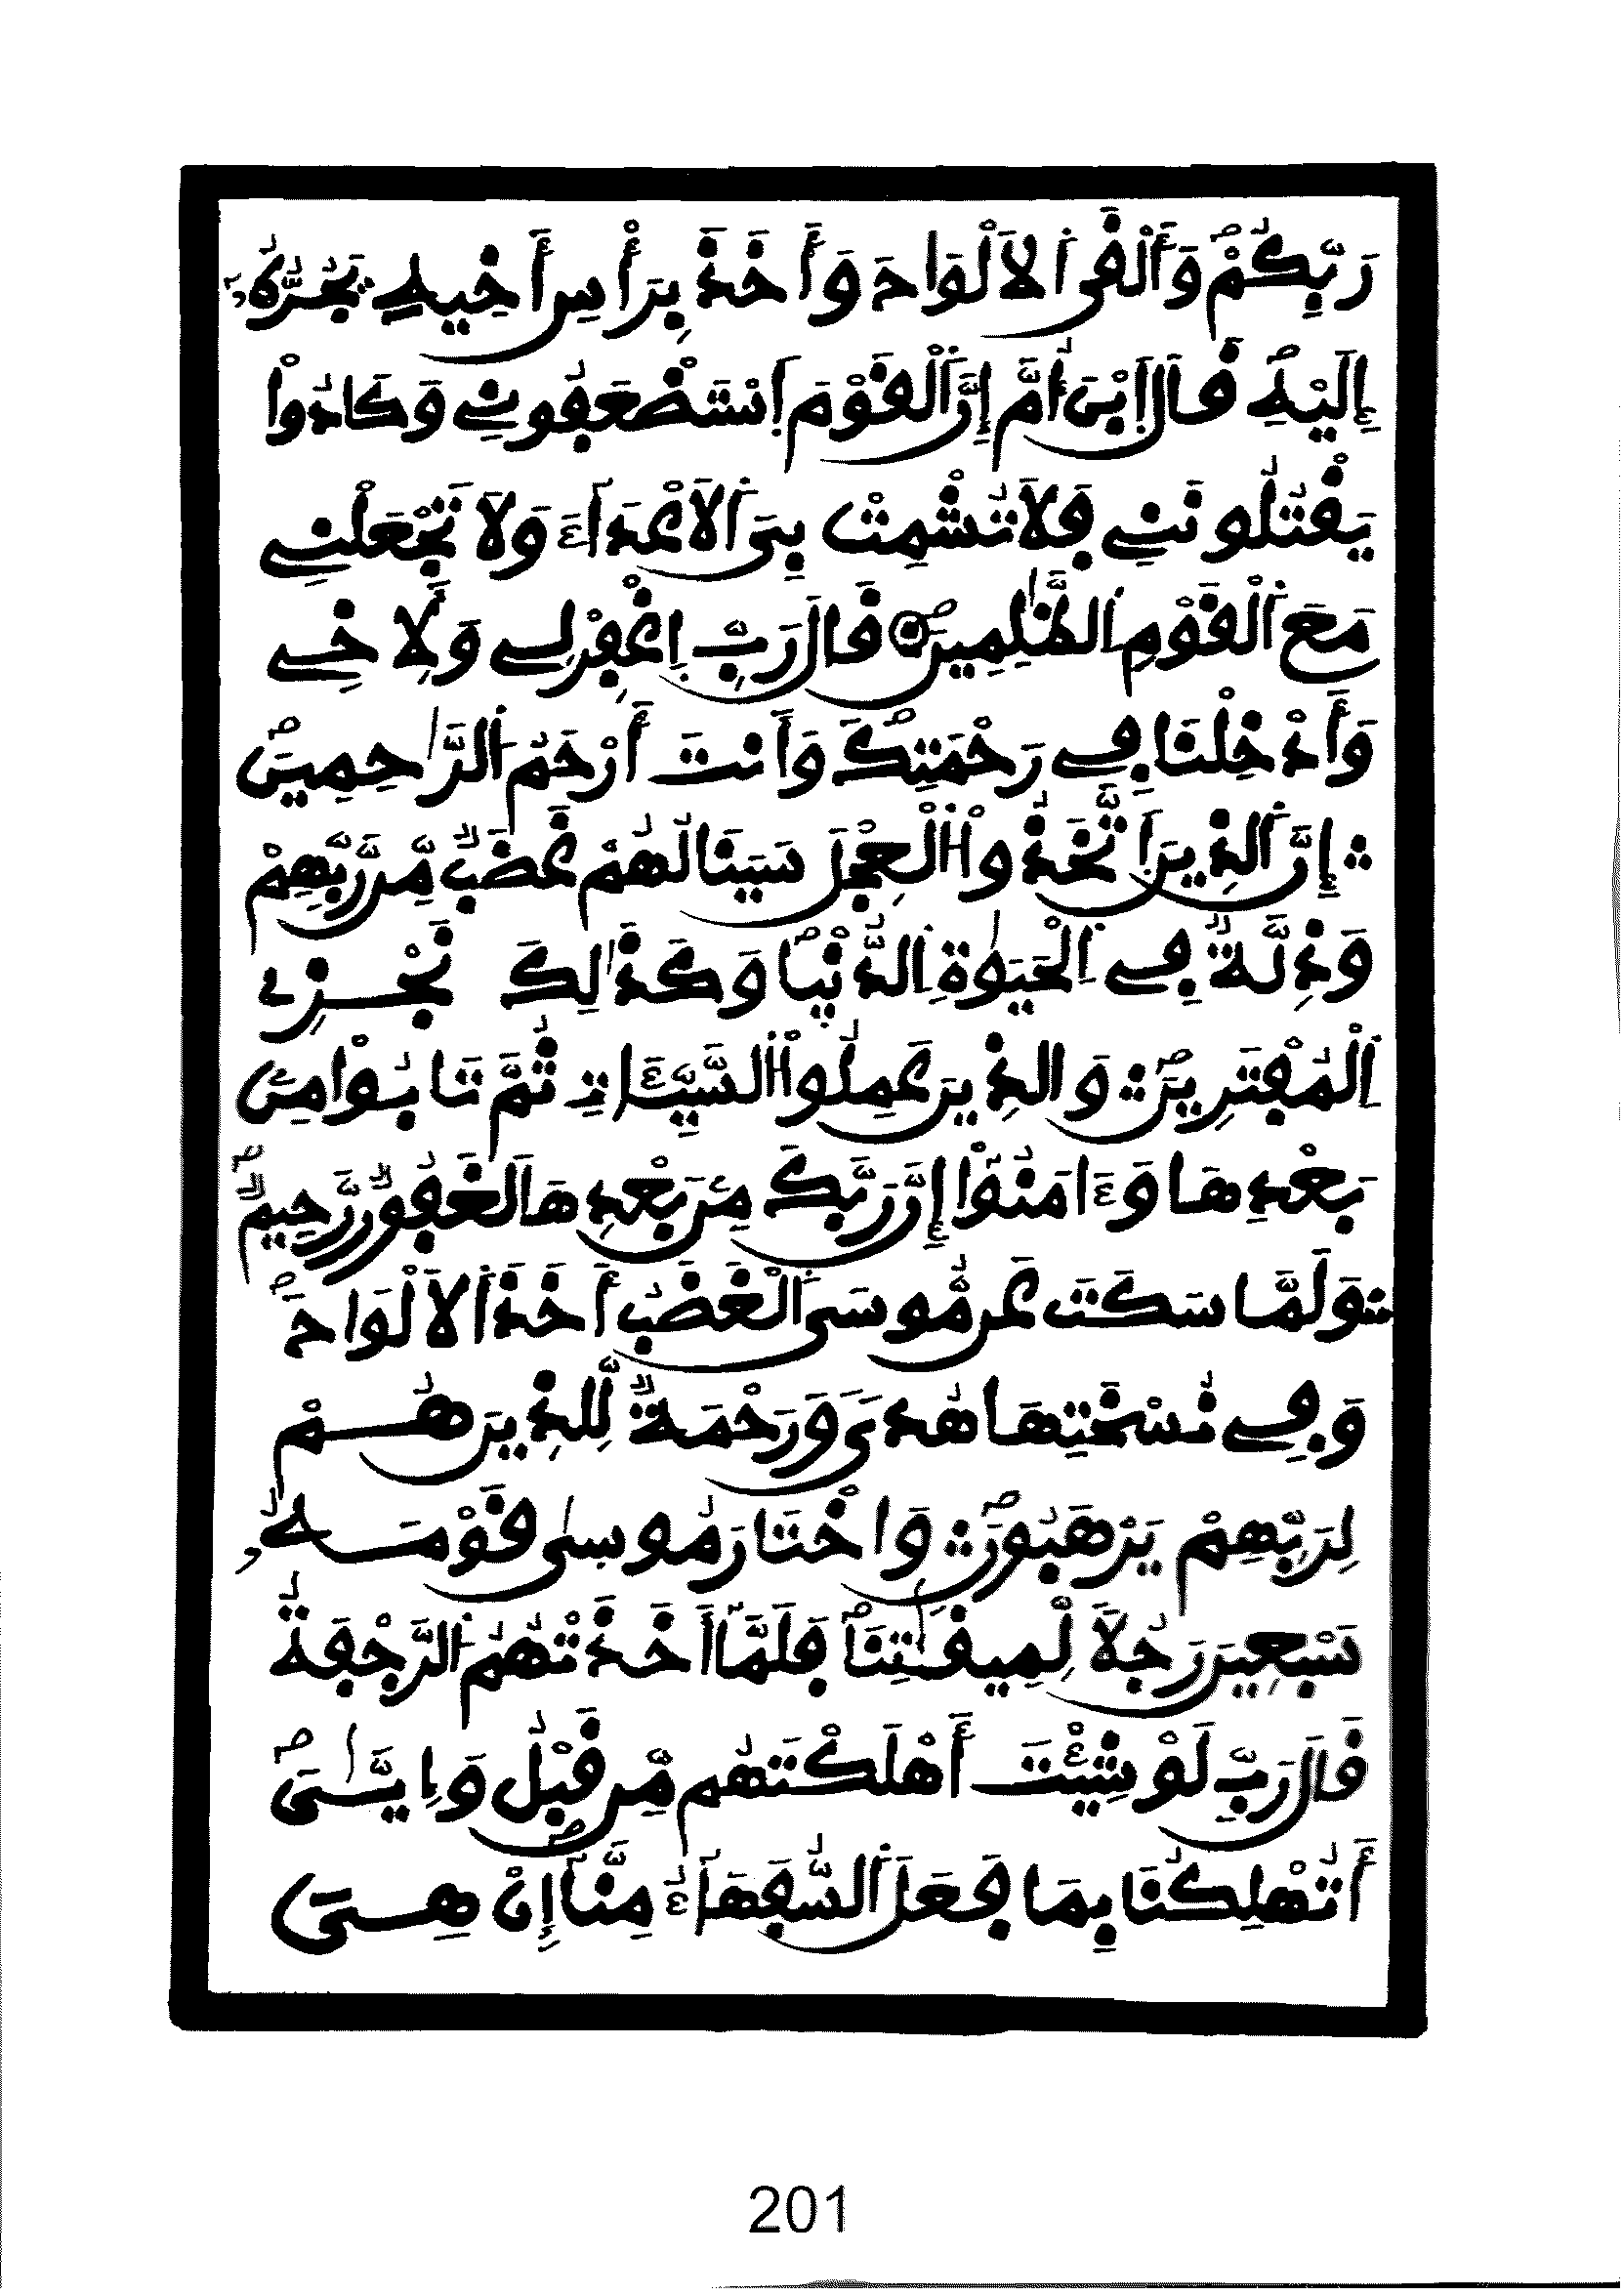 رَبِّكُمْۖ وَأَلْقَى اَلَالْوَاحَ وَأَخَذَ بِرَأْسِ أَخِيهِ يَجُرُّهُۥٓ
إِلَيْهِۖ قَالَ اَبْنَ أُمَّ إِنَّ اَلْقَوْمَ اَسْتَضْعَفُونِے وَكَادُواْ
يَقْتُلُونَنِے فَلَا تُشْمِتْ بِيَ اَلَاعْدَآءَ وَلَا تَجْعَلْنِے
مَعَ اَلْقَوْمِ اِلظَّٰلِمِينَۖ قَالَ رَبِّ اِغْفِرْ لِے وَلِأَخِے
وَأَدْخِلْنَا فِے رَحْمَتِكَۖ وَأَنتَ أَرْحَمُ اَلرَّٰحِمِينَۖ
إِنَّ اَلذِينَ اَتَّخَذُواْ اُلْعِجْلَ سَيَنَالُهُمْ غَضَبٌ مِّن رَّبِّهِمْ
وَذِلَّةٌ فِے اِلْحَيَوٰةِ اِلدُّنْي۪اۖ وَكَذَٰلِكَ نَجْزِے
اِلْمُفْتَرِينَۖ وَالذِينَ عَمِلُواْ اُلسَّيِّـَٔاتِ ثُمَّ تَابُواْ مِنۢ
بَعْدِهَا وَءَامَنُوٓاْ إِنَّ رَبَّكَ مِنۢ بَعْدِهَا لَغَفُورٞ رَّحِيمٞۖ
وَلَمَّا سَكَتَ عَن مُّوسَى اَلْغَضَبُ أَخَذَ اَلَالْوَاحَۖ
وَفِے نُسْخَتِهَا هُدىٗ وَرَحْمَةٞ لِّلذِينَ هُمْ
لِرَبِّهِمْ يَرْهَبُونَۖ وَاخْتَارَ مُوس۪ىٰ قَوْمَهُۥ
سَبْعِينَ رَجُلاٗ لِّمِيقَٰتِنَاۖ فَلَمَّآ أَخَذَتْهُمُ اُلرَّجْفَةُ
قَالَ رَبِّ لَوْ شِئْتَ أَهْلَكْتَهُم مِّن قَبْلُ وَإِيَّٰيَۖ
أَتُهْلِكُنَا بِمَا فَعَلَ اَلسُّفَهَآءُ مِنَّآ إِنْ هِيَ
201